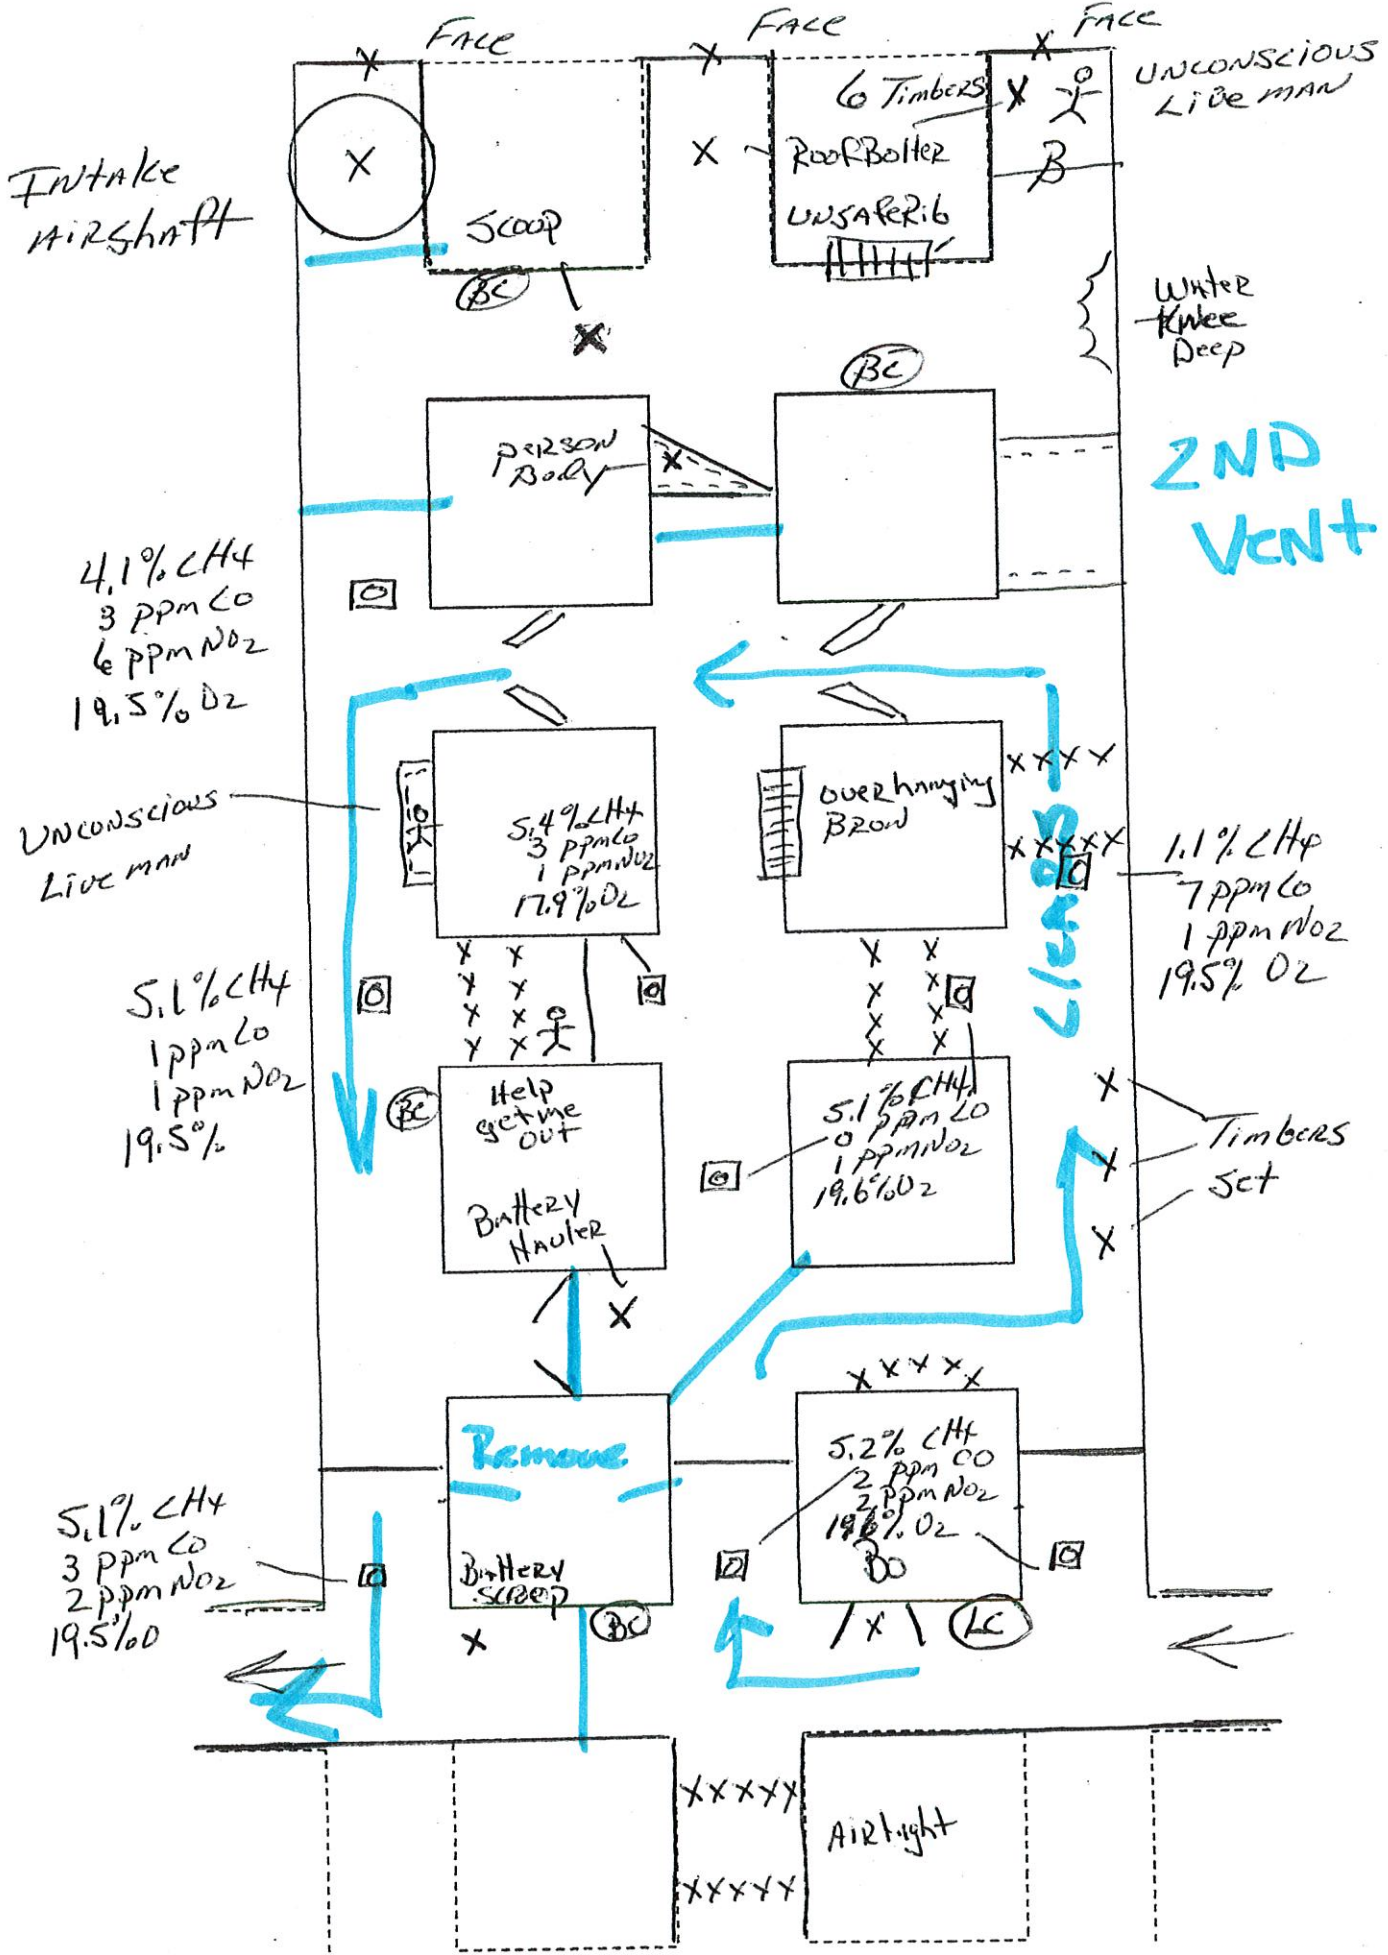 FACE
FACE
FACE
UNCONSCIOUS
Live MAN
6 Timbers
X
X
X
X
X
X
RoofBolter
B
INTAKE
AIRShaft
Scoop
UNSAFERib
BC
X
WATER
Knee
Deep
BC
PERSON
Body
X
2ND
VENT
4.1% CH4
3 ppm CO
6 ppm NO2
19.5% O2
UNCONSCIOUS
Live MAN
5.4% CH4
3 ppmCo
1 ppmNO2
17.9% O2
overhanging
BROW
X X X X
X X X X X
1.1% CH4
7 ppm CO
1 ppm NO2
19.5% O2
5.1% CH4
1 ppm CO
1 ppm NO2
19.5%
X X
X X
X X
X X
X X
X X
X X
X X
BC
Help
get me
out
Battery
Hauler
X
5.1% CH4
0 ppm CO
1 ppmNO2
19.6% O2
X
X
X
Timbers
Set
Remove
Battery
BC
X
X X X X X
5.2% CH4
2 ppm CO
2 ppm NO2
19.6% O2
BO
X
LC
5.1% CH4
3 ppm CO
2 ppm NO2
19.5% O
XXXXX
XXXXX
AIRtight